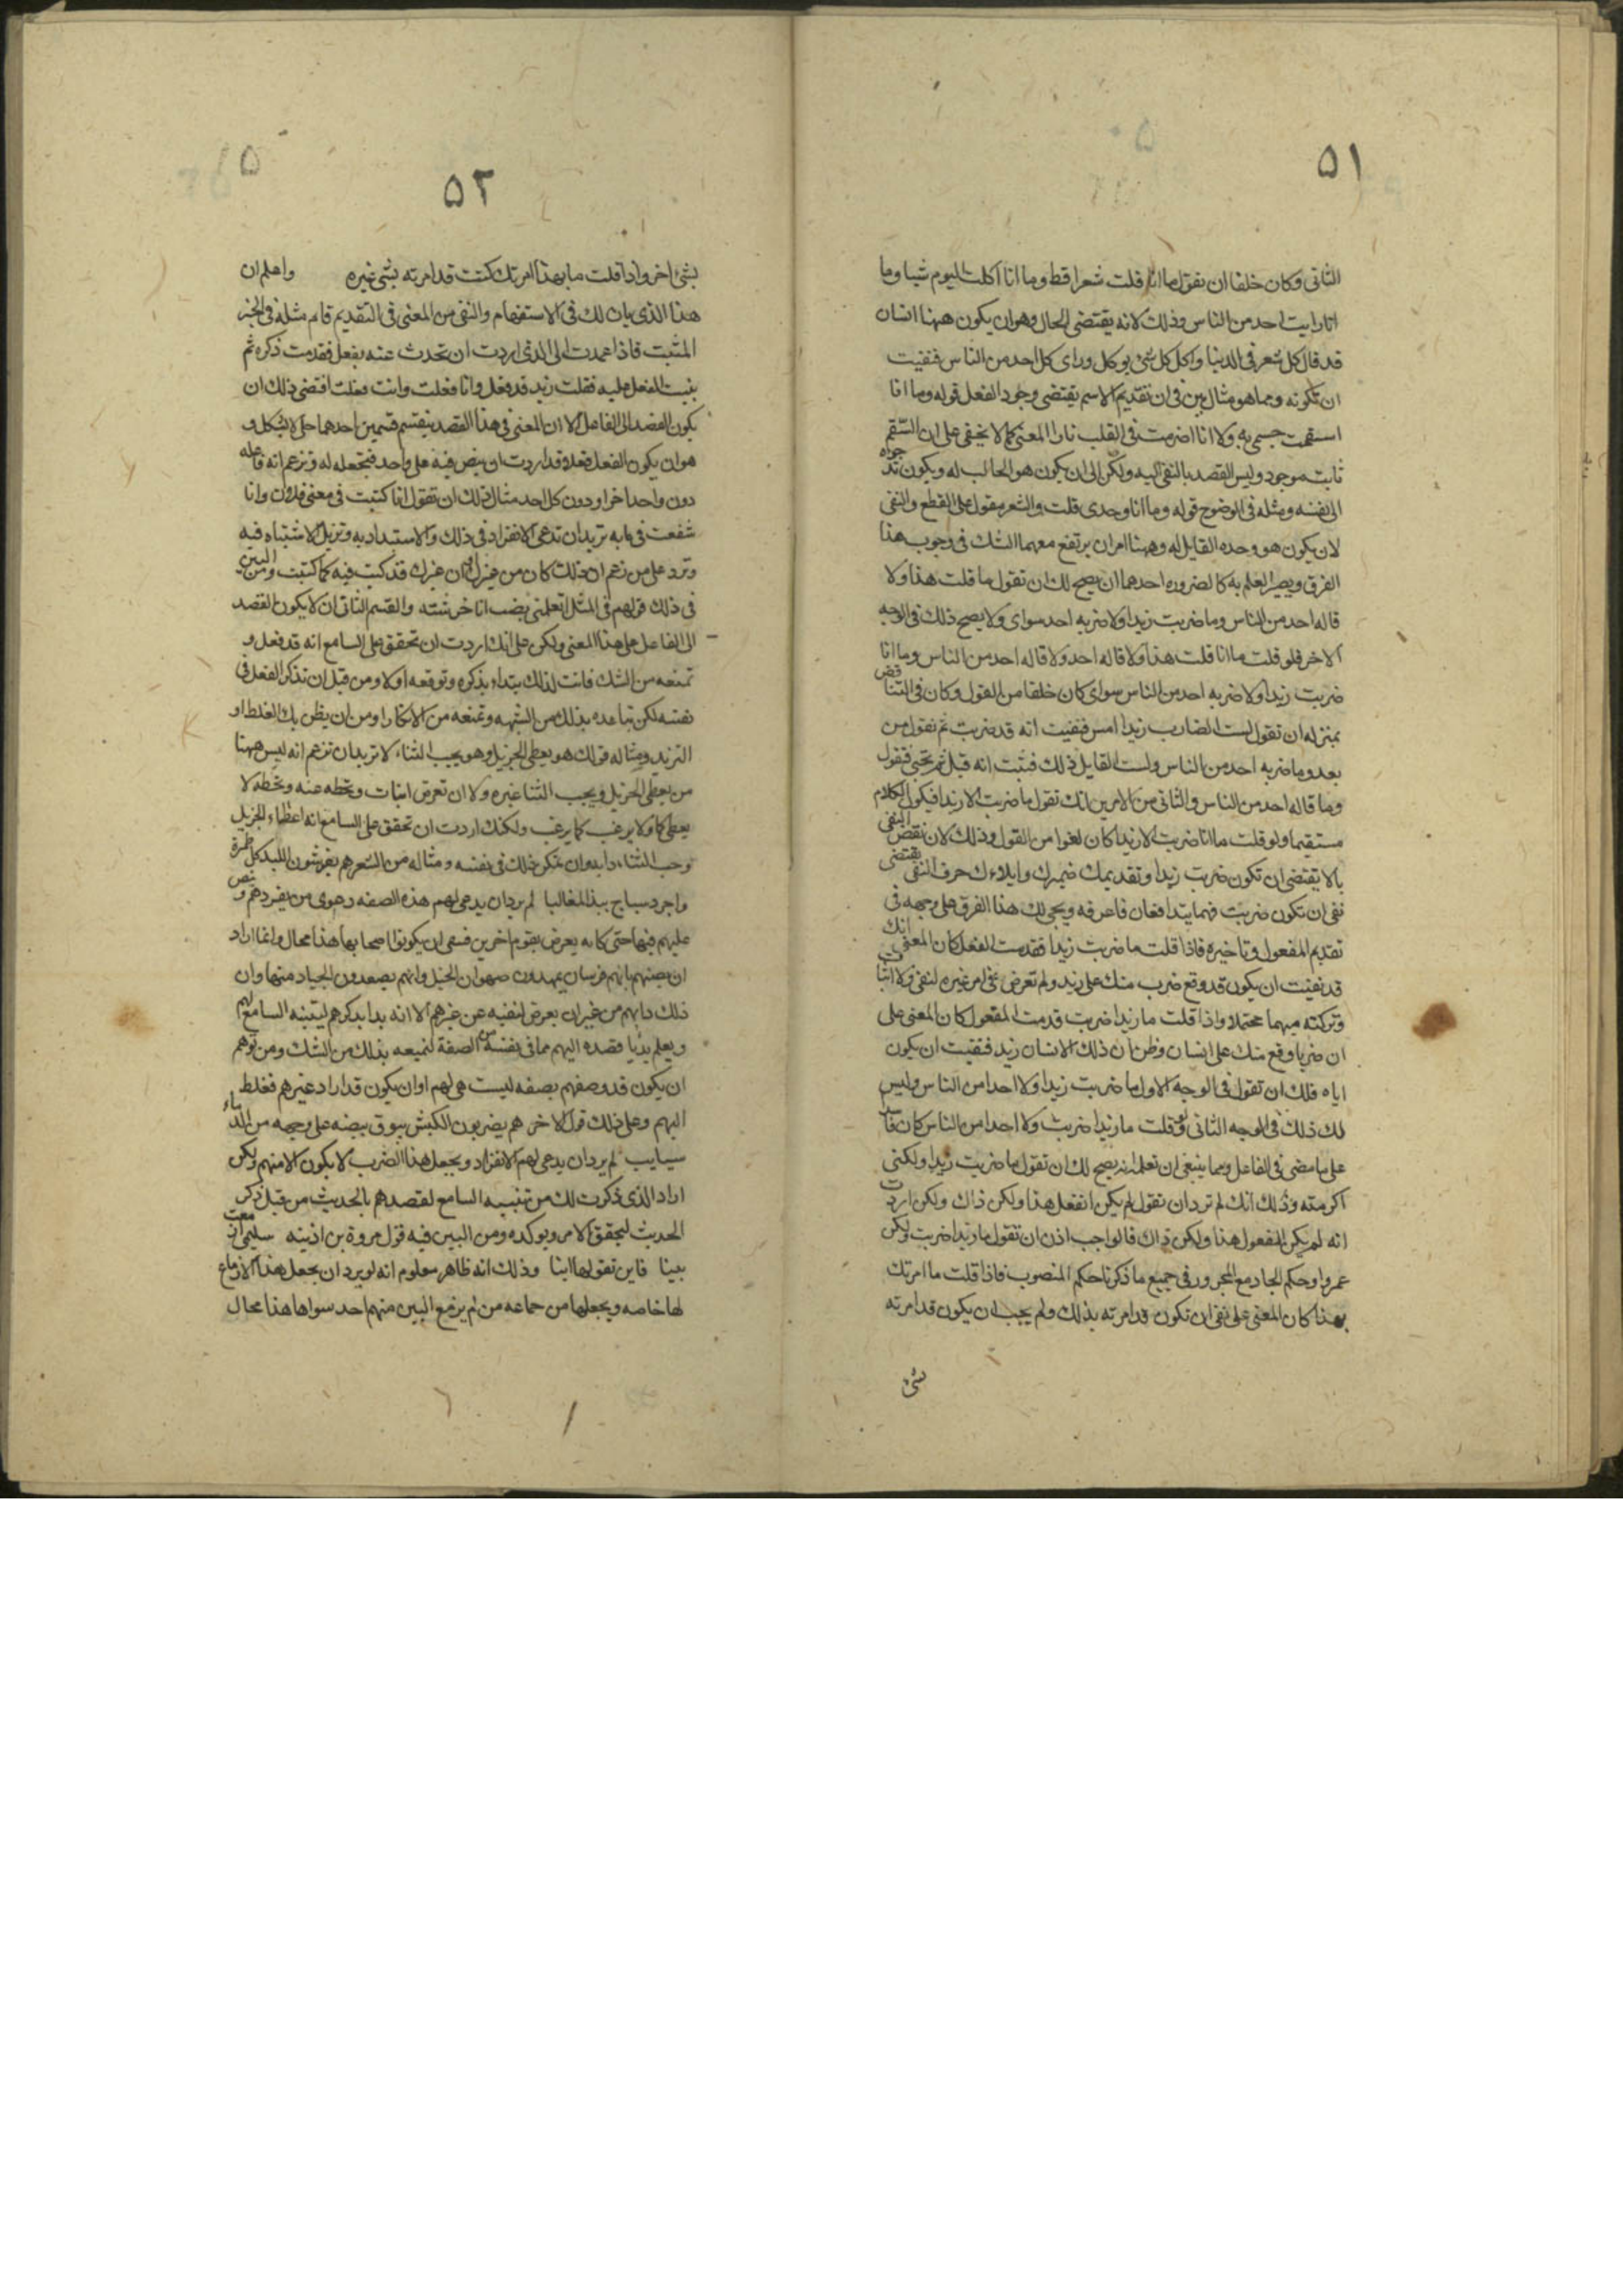 ٥١
الثانى وكان خلفا ان نقول ما انا قلت شعرا قط وما انا اكلت اليوم شيا وما
انا رايت احد من الناس وذلك لانه يقتضى المحال وهو ان يكون ههنا انسان
قد قال كل شعر فى الدنيا واكل كل شئ يوكل وراى كل احد من الناس فنفيت
ان تكونه ومما هو مثال بين فى ان تقديم الاسم يقتضى وجود الفعل قوله وما انا
اسقمت جسمى به ولا انا اضرمت فى القلب نارا المعنى كما لا يخفى على ان السقم
ثابت موجود وليس القصد بالنفى اليه ولكن الى ان يكون هو الجالب له ويكون قد جره
الى نفسه ومثله فى الوضوح قوله وما انا وحدى قلت والشعر مقول على القطع والنفى
لان يكون هو وحده القايل له وههنا امران يرتفع معهما الشك فى وجوب هذا
الفرق ويصير العلم به كالضروره احدهما ان يصح لك ان تقول ما قلت هذا ولا
قاله احد من الناس وما ضربت زيدا ولا ضربه احد سواى ولا يصح ذلك فى الوجه
الاخر فلو قلت ما انا قلت هذا ولا قاله احد ولا قاله احد من الناس وما انا
ضربت زيدا ولا ضربه احد من الناس سواى كان خلفا من القول وكان فى التناقض
بمنزله ان تقول لست الضارب زيدا امس فنفيت انه قد ضرب ثم نقول من
بعد وما ضربه احد من الناس ولست القايل ذلك فتبت انه قيل ثم تجئ فتقول
وما قاله احد من الناس والثانى من الامرين انك تقول ما ضربت الا زيدا فيكون الكلام
مستقيما ولو قلت ما انا ضربت الا زيدا كان لغوا من القول وذلك لان نقض النفى
بالا يقتضى ان تكون ضربت زيدا وتقديمك ضميرك وايلاءك حرف النفى يقتضى
نفى ان تكون ضربت فهما يتدافعان فاعرفه ويجى لك هذا الفرق على وجهه فى
تقديم المفعول وتاخيره فاذا قلت ما ضربت زيدا فقدمت الفعل كان المعنى انك
قد نفيت ان يكون قد وقع ضرب منك على زيد ولم تعرض فى امر غيره لنفى ولا اثبات
وتركته مبهما محتملا واذا قلت ما زيدا ضربت قدمت المفعول كان المعنى على
ان ضربا وقع منك على انسان وظن ان ذلك الانسان زيد فنفيت ان يكون
اياه فلك ان تقول فى الوجه الاول ما ضربت زيدا ولا احدا من الناس وليس
لك ذلك فى الوجه الثانى فلو قلت ما زيدا ضربت ولا احدا من الناس كان فاسدا
على ما مضى فى الفاعل ومما ينبغى ان تعلم انه يصح لك ان تقول ما ضربت زيدا ولكنى
اكرمته وذلك انك لم ترد ان تقول لم يكن الفعل هذا ولكن ذاك ولكن اردت
انه لم يكن المفعول هذا ولكن ذاك فالواجب اذن ان تقول ما زيدا ضربت ولكن
عمروا وحكم الجار مع المجرور فى جميع ما ذكرنا حكم المنصوب فاذا قلت ما امرتك
بهذا كان المعنى على نفى ان تكون قد امرته بذلك ولم يجب ان يكون قد امرته
شئ
٥٢
بشئ اخر واذا قلت ما بهذا امرتك كنت قد امرته بشى غيره واعلم ان
هذا الذى بان لك فى الاستفهام والنفى من المعنى فى التقديم قام مثله فى الخبر
المثبت فاذا عمدت الى الذى اردت ان تحدث عنه بفعل فقدمت ذكره ثم
بنيت الفعل عليه فقلت زيد قد فعل وانا فعلت وانت فعلت اقتضى ذلك ان
يكون القصد الى الفاعل الا ان المعنى فى هذا القصد ينقسم قسمين احدهما جلى لا يشكل و
هو ان يكون الفعل فعلا قد اردت ان ينص فيه على واحد فتجعله له وتزعم انه فاعله
دون واحد اخر او دون كل احد مثال ذلك ان تقول انا كتبت فى معنى فلان وانا
شفعت فى بابه تريد ان تدعى الانفراد فى ذلك والاستبداد به وتزيل الاشتباه فيه
وترد على من زعم ان ذلك كان من غيرك او ان غيرك قد كتب فيه كما كتبت ومن البين
فى ذلك قولهم فى المثل اتعلمنى بضب انا حرشته والقسم الثانى ان لا يكون القصد
الى الفاعل على هذا المعنى ولكن على انك اردت ان تحقق على السامع انه قد فعل و
تمنعه من الشك فانت لذلك تبتداء بذكره وتوقعه اولا ومن قبل ان تذكر الفعل فى
نفسه لكى تباعده بذلك من الشبهه وتمنعه من الانكار او من ان يظن بك الغلط او
التزيد ومثاله قولك هو يعطى الجزيل وهو يحب الثناء لا تريد ان تزعم انه ليس ههنا
من يعطى الجزيل ويحب الثنا غيره ولا ان تعرض انسان وتحطه عنه وتجعله لا
يعطى كما ولا يرغب كما يرغب ولكنك اردت ان تحقق على السامع انه اعطاء الجزيل
وحب الثناء دابه وان تمكن ذلك فى نفسه ومثاله من الشعر هم يفرشون اللبد كل طمرة
واجرد سباح يبذ المغالبا لم يرد ان يدعى لهم هذه الصفه دعوى من يفردهم وينص
عليهم فيها حتى كانه يعرض بقوم اخرين فينفى ان يكونوا اصحابها هذا محال وانما اراد
ان يصفهم بانهم فرسان يمهدون صهوات الخيل وانهم يقعدون الجياد منها وان
ذلك دابهم من غير ان يعرض لنفيه عن غيرهم الا انه بدا بذكرهم لينبه السامع لهم
ويعلم بديا قصده اليهم مما فى نفسه من الصفة ليمنعه بذلك من الشك ومن توهم
ان يكون قد وصفهم بصفه ليست هى لهم او ان يكون قد اراد غيرهم فغلط
اليهم وعلى ذلك قول الاخر هم يضربون الكبش يبرق بيضه على وجهه من الدماء
سبايب لم يرد ان يدعى لهم الانفراد ويجعل هذا الضرب لا يكون الا منهم ولكن
اراد الذى ذكرت لك من تنبيه السامع لقصدهم بالحديث من قبل ذكر
الحديث ليحقق الامر ويوكده ومن البين فيه قول عروة بن اذينه سليمى ازمعت
بينا فاين نقولها اينا وذلك انه ظاهر معلوم انه لم يرد ان يجعل هذا الازماع
لها خاصه ويجعلها من جماعه من لم يزمع البين منهم احد سواها هذا محال